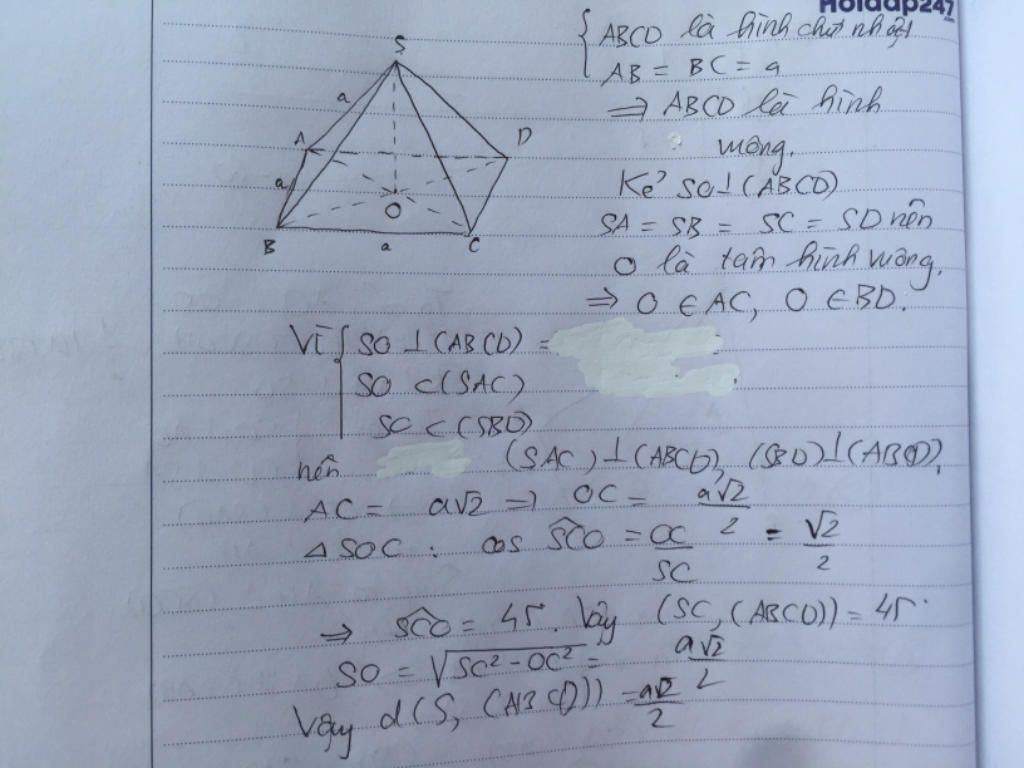 Hoidap247
{ ABCD là hình chữ nhật
AB = BC = a
⇒ ABCD là hình
vuông.
Kẻ SO ⊥ (ABCD)
SA = SB = SC = SD nên
O là tâm hình vuông.
⇒ O ∈ AC, O ∈ BD.
S
a
A
D
a
O
B
a
C
Vì { SO ⊥ (ABCD) =
SO ⊂ (SAC)
SC ⊂ (SBD)
nên (SAC) ⊥ (ABCD), (SBD) ⊥ (ABCD),
AC = a√2 ⇒ OC = a√2/2
Δ SOC : cos SCO = OC/SC = √2/2
⇒ SCO = 45°. Vậy (SC, (ABCD)) = 45°
SO = √(SC² - OC²) = a√2/2
Vậy d(S, (ABCD)) = a√2/2